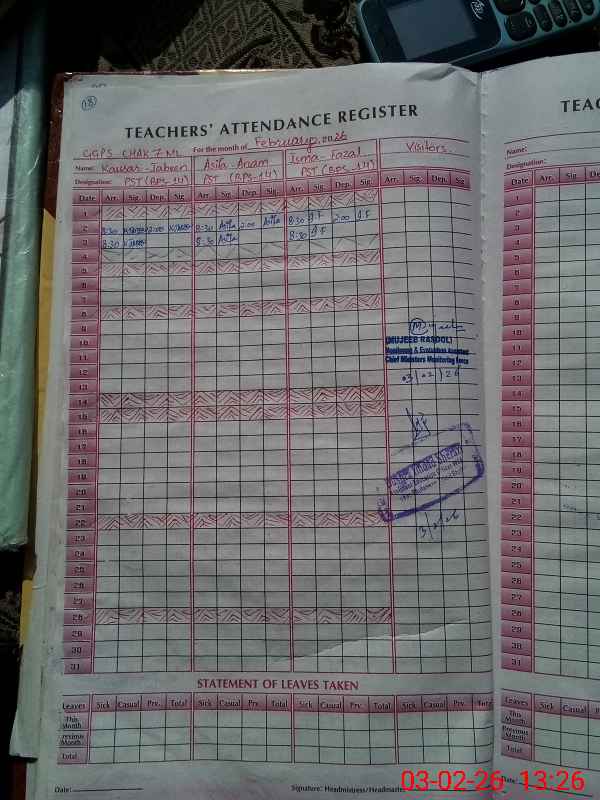 18
TEACHERS' ATTENDANCE REGISTER
For the month of February, 2026
GGPS CHAK 7 NL
Name: Kausar-Jabeen Asifa-Anam Isma-Fazal Visitors.
Designation: PST (BPS-14) PST (BPS-14) PST (BPS-14)
Date Arr. Sig Dep. Sig. Arr. Sig. Dep. Sig. Arr. Sig. Dep. Sig. Arr. Sig. Dep. Sig.
1
2 8:30 2:00 8:30 Asifa 2:00 Asifa 8:30 I.F 2:00 I.F
3 8:30 8:30 Asifa 8:30 I.F
4
5
6
7
8
9
10
(MUJEEB RASOOL)
11 Monitoring & Evaluation Assistant
Chief Ministers Monitoring Force
12
03/02/26
13
14
15
16
17
18
19
20
21
22
23
24
25
26
27
28
29
30
31
STATEMENT OF LEAVES TAKEN
Leaves Sick Casual Prv. Total Sick Casual Prv. Total Sick Casual Prv. Total Sick Casual Prv.
This Month
Previous Month
Total
Date: Signature: Headmistress/Headmaster
TEAC
Name:
Designation:
Date Arr. Sig. Dep.
1
2
3
4
5
6
7
8
9
10
11
12
13
14
15
16
17
18
19
20
21
22
23
24
25
26
27
28
29
30
31
Leaves Sick Casual
This Month
Previous Month
Total
Date:
03-02-26 13:26